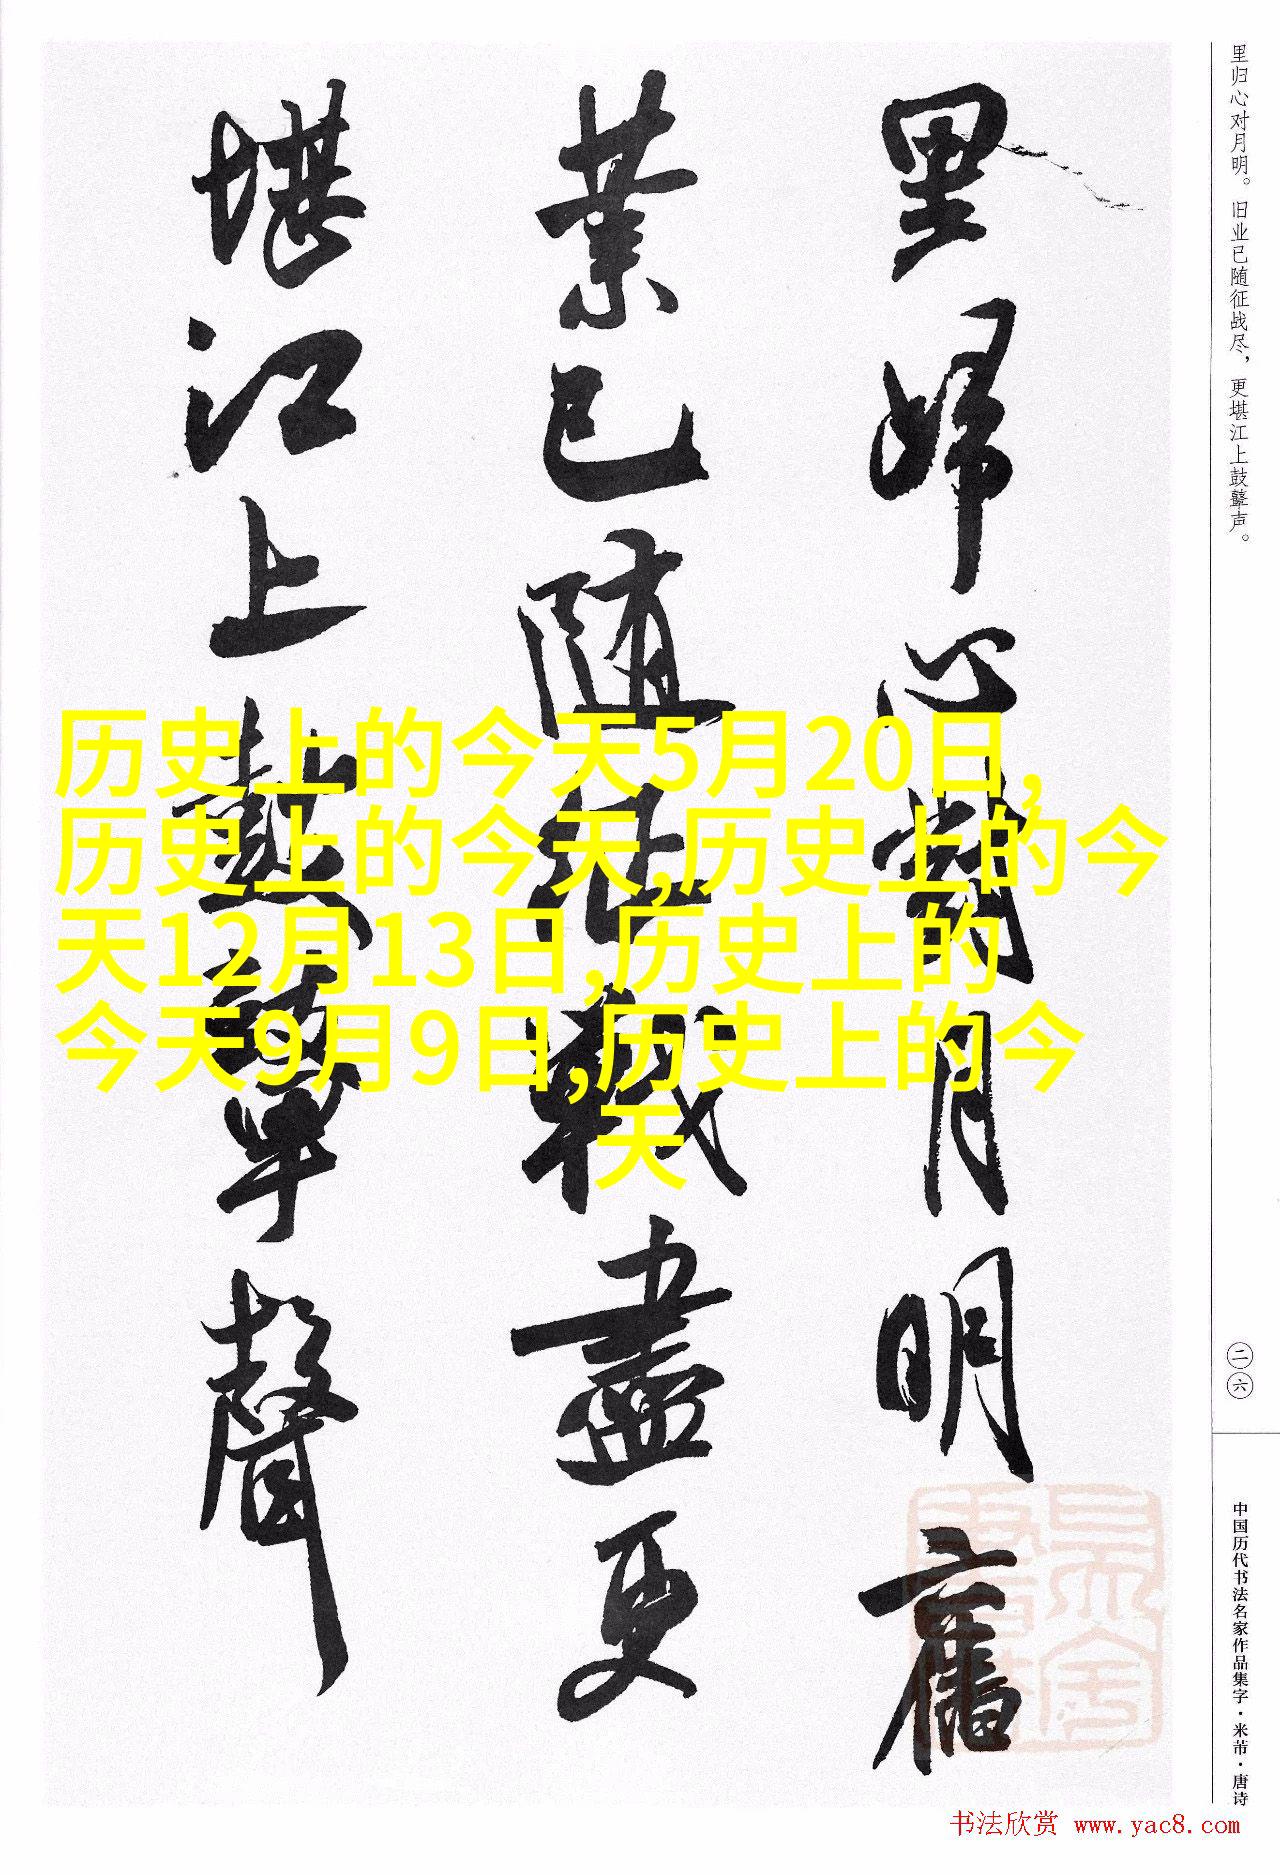 里归心对月明。旧业已随征战尽，更堪江上鼓鼙声。
里歸心對月明舊
業已随征戰盡更
堪江上鼓鼙聲
历史上的今天5月20日,
历史上的今天,历史上的今
天12月13日,历史上的
今天9月9日,历史上的今
天
二六
中国历代书法名家作品集字·米芾·唐诗
书法欣赏 www.yac8.com